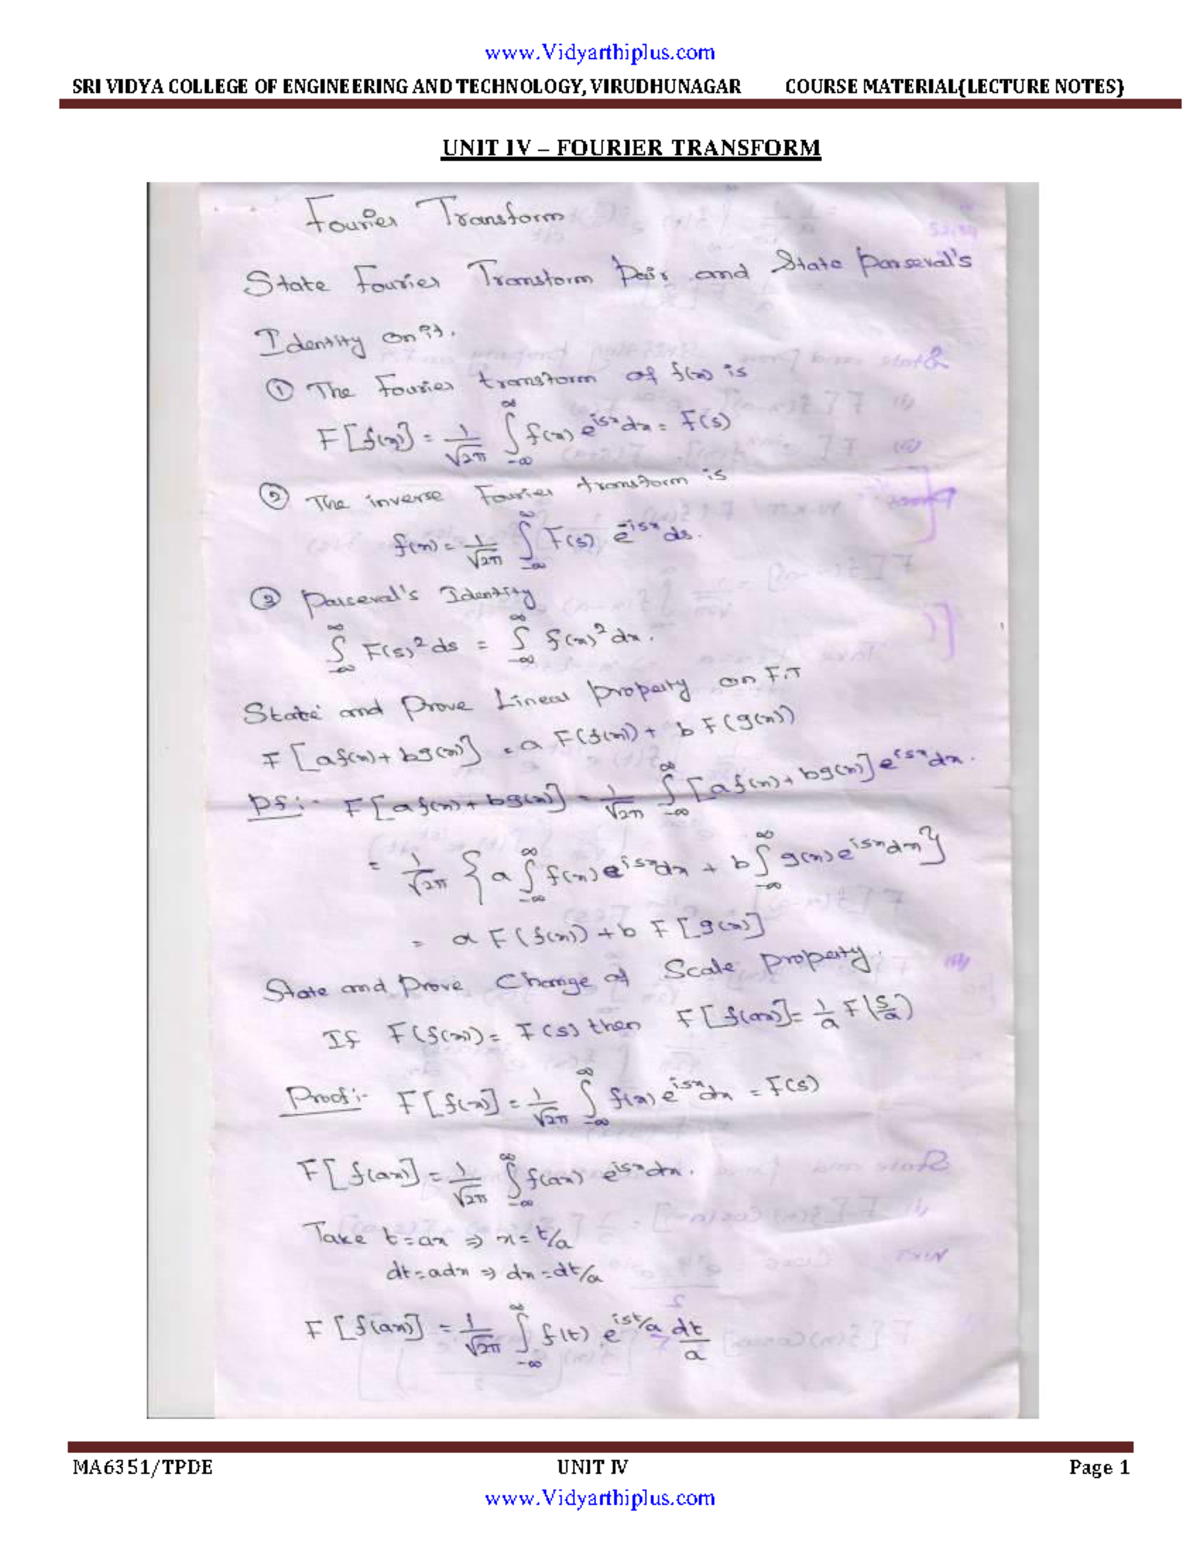 www.Vidyarthiplus.com
SRI VIDYA COLLEGE OF ENGINEERING AND TECHNOLOGY, VIRUDHUNAGAR COURSE MATERIAL{LECTURE NOTES}
UNIT IV – FOURIER TRANSFORM
Fourier Transform
State Fourier Transform Pair and State Parseval's
Identity on it.
① The Fourier transform of f(x) is
F[f(x)] = 1/√2π ∫_{-∞}^{∞} f(x) e^{isx} dx = F(s)
② The inverse Fourier transform is
f(x) = 1/√2π ∫_{-∞}^{∞} F(s) e^{-isx} ds.
③ Parseval's Identity
∫_{-∞}^{∞} F(s)² ds = ∫_{-∞}^{∞} f(x)² dx.
State and Prove Linear Property on F.T
F[af(x) + bg(x)] = a F(f(x)) + b F(g(x))
Pf:- F[af(x) + bg(x)] = 1/√2π ∫_{-∞}^{∞} [af(x) + bg(x)] e^{isx} dx.
= 1/√2π { a ∫_{-∞}^{∞} f(x) e^{isx} dx + b ∫_{-∞}^{∞} g(x) e^{isx} dx }
= a F(f(x)) + b F[g(x)]
State and Prove Change of Scale property.
If F(f(x)) = F(s) then F[f(ax)] = 1/a F(s/a)
Proof:- F[f(x)] = 1/√2π ∫_{-∞}^{∞} f(x) e^{isx} dx = F(s)
F[f(ax)] = 1/√2π ∫_{-∞}^{∞} f(ax) e^{isx} dx.
Take t = ax ⇒ x = t/a
dt = adx ⇒ dx = dt/a
F[f(ax)] = 1/√2π ∫_{-∞}^{∞} f(t) e^{ist/a} dt/a
MA6351/TPDE UNIT IV Page 1
www.Vidyarthiplus.com